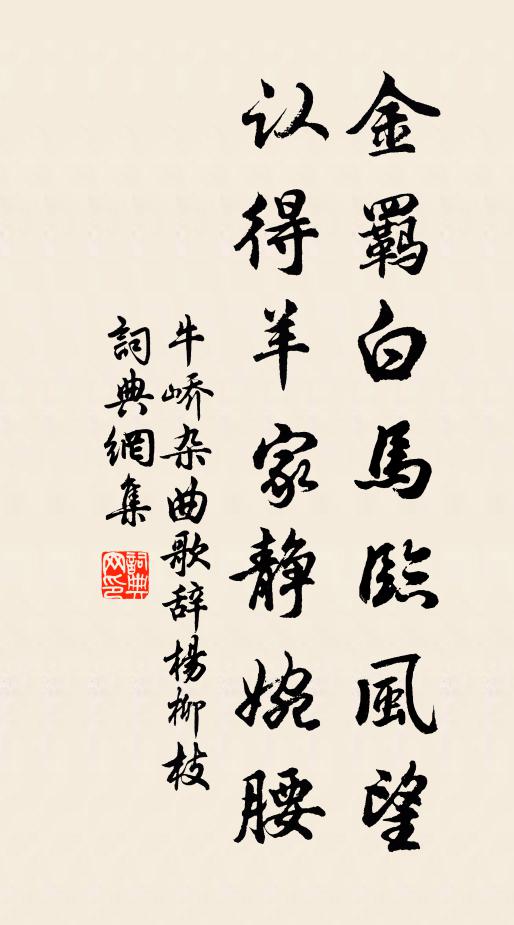 金羈白馬臨風望
认得羊家静婉腰
牛峤杂曲歌辞楊柳枝
詞典網集
詞典
网印